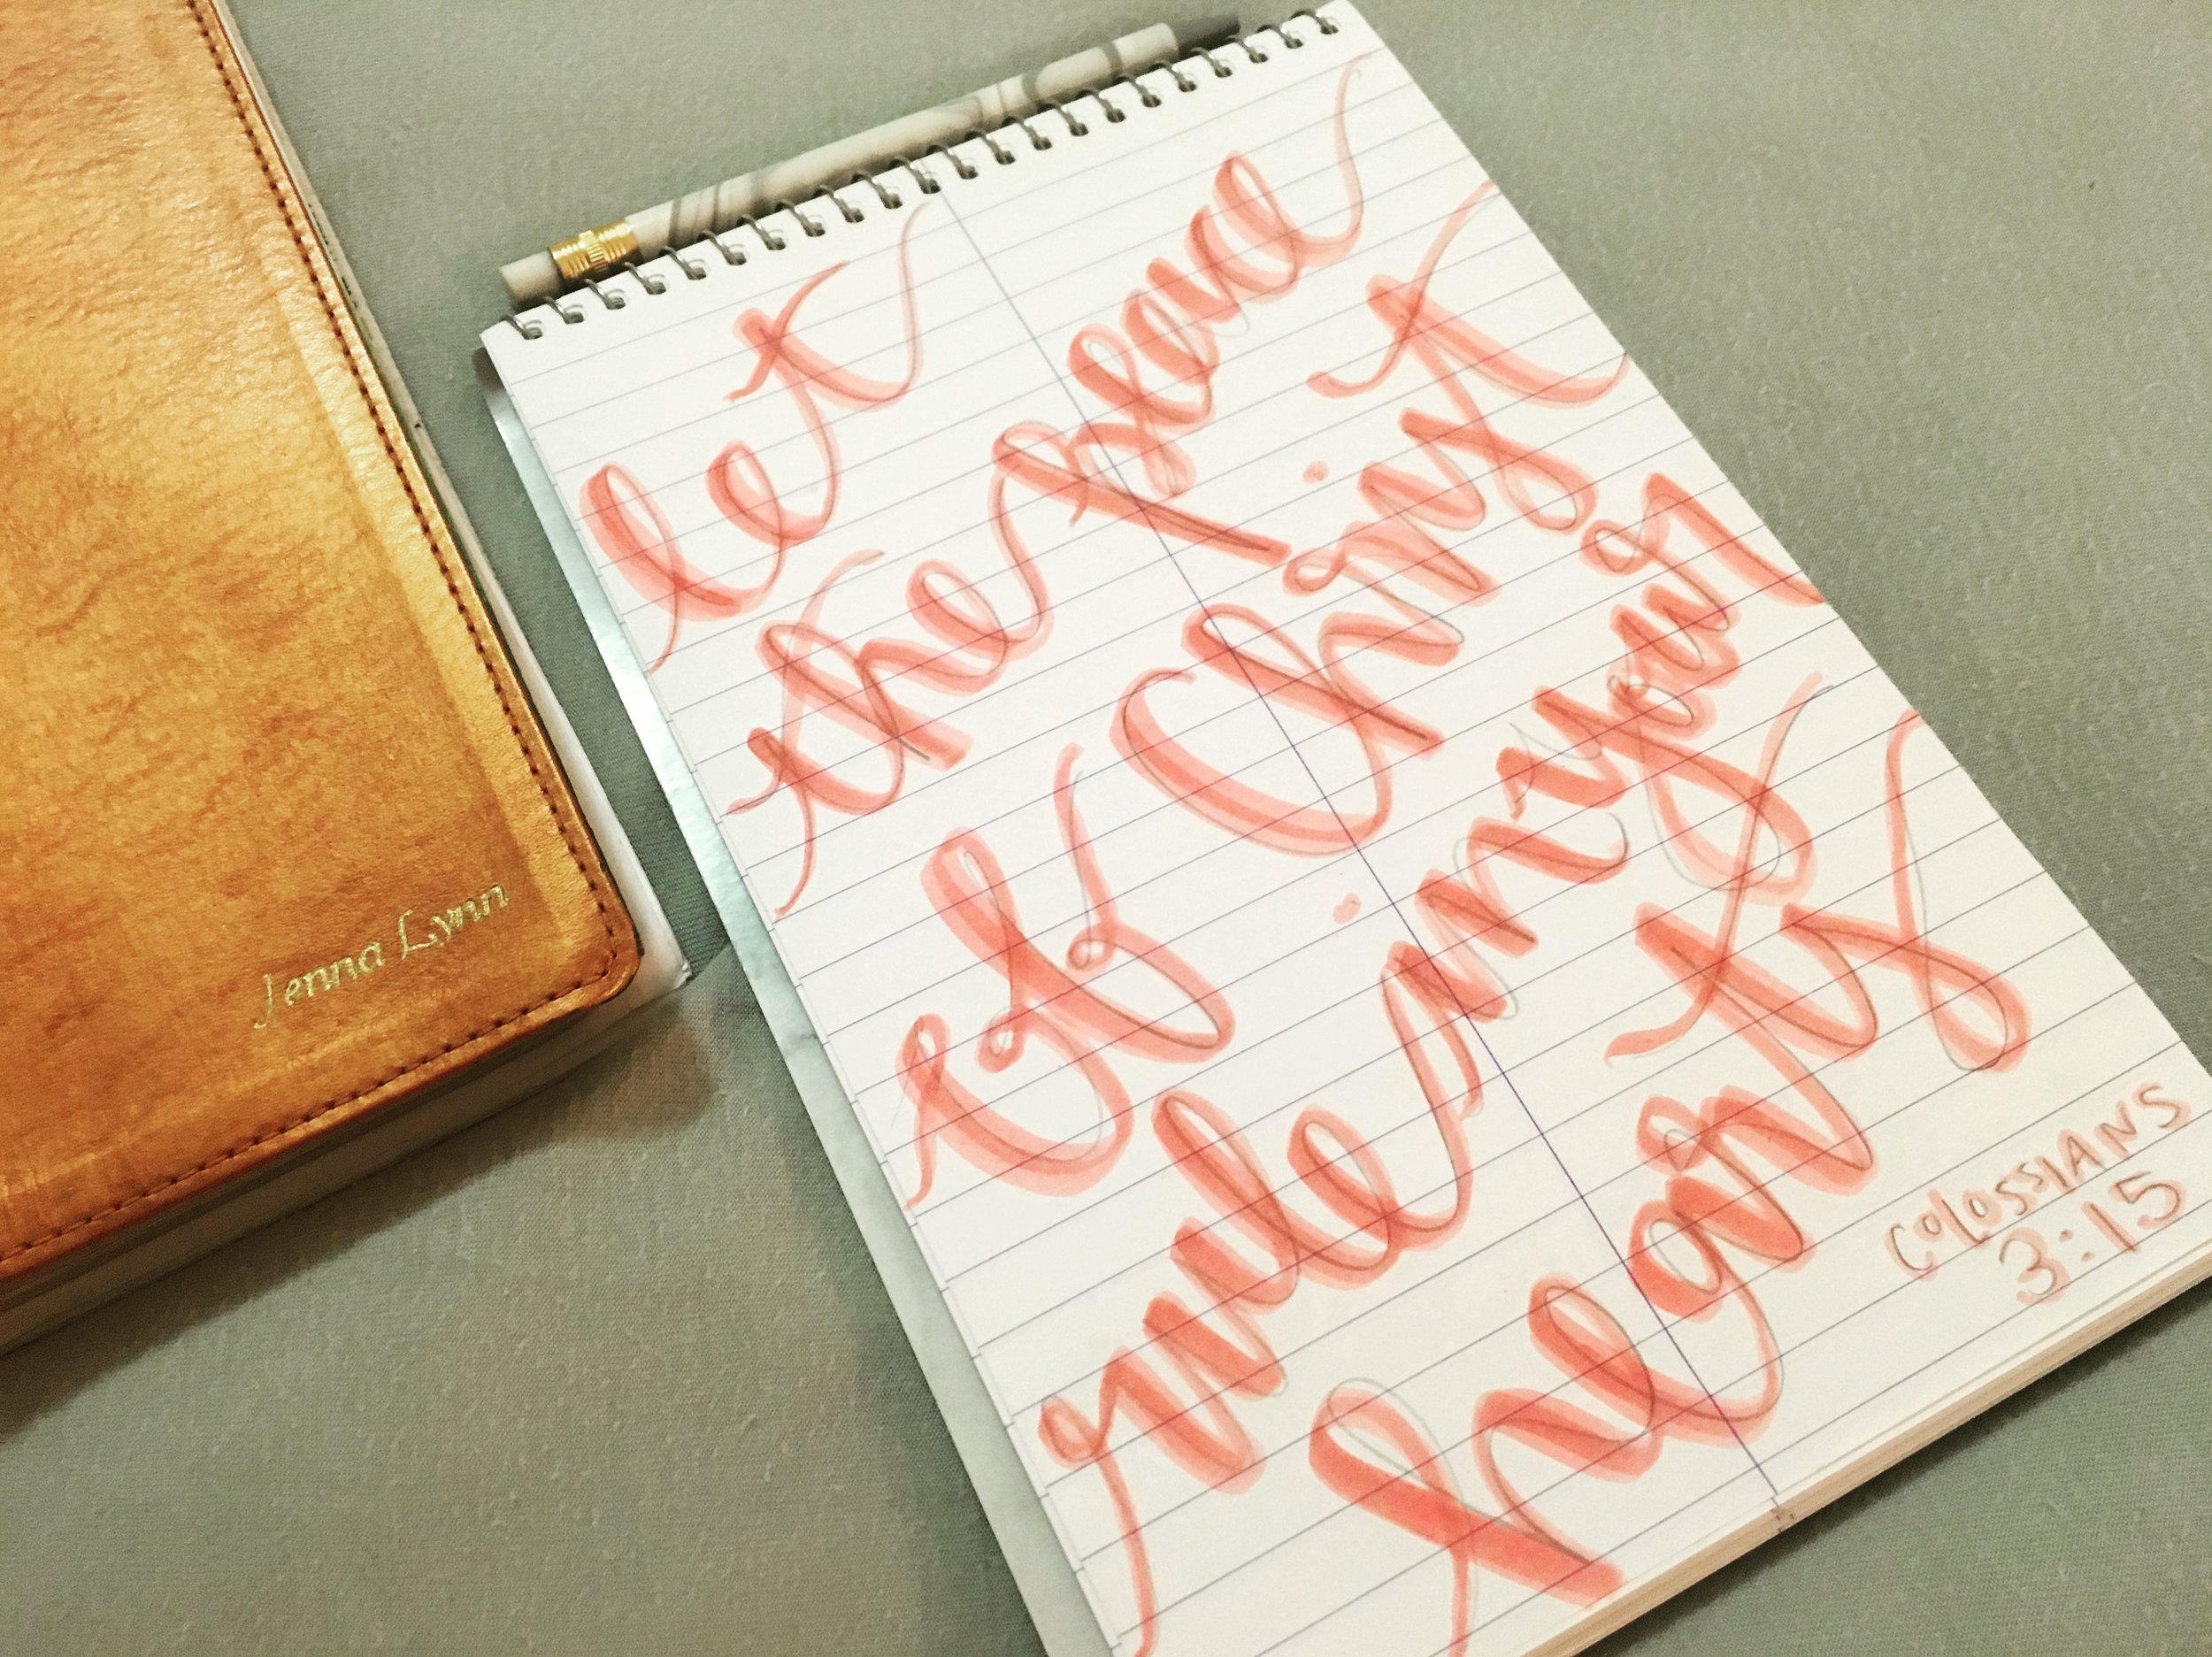 Jenna Lynn
let
the peace
of Christ
rule in your
hearts
COLOSSIANS
3:15